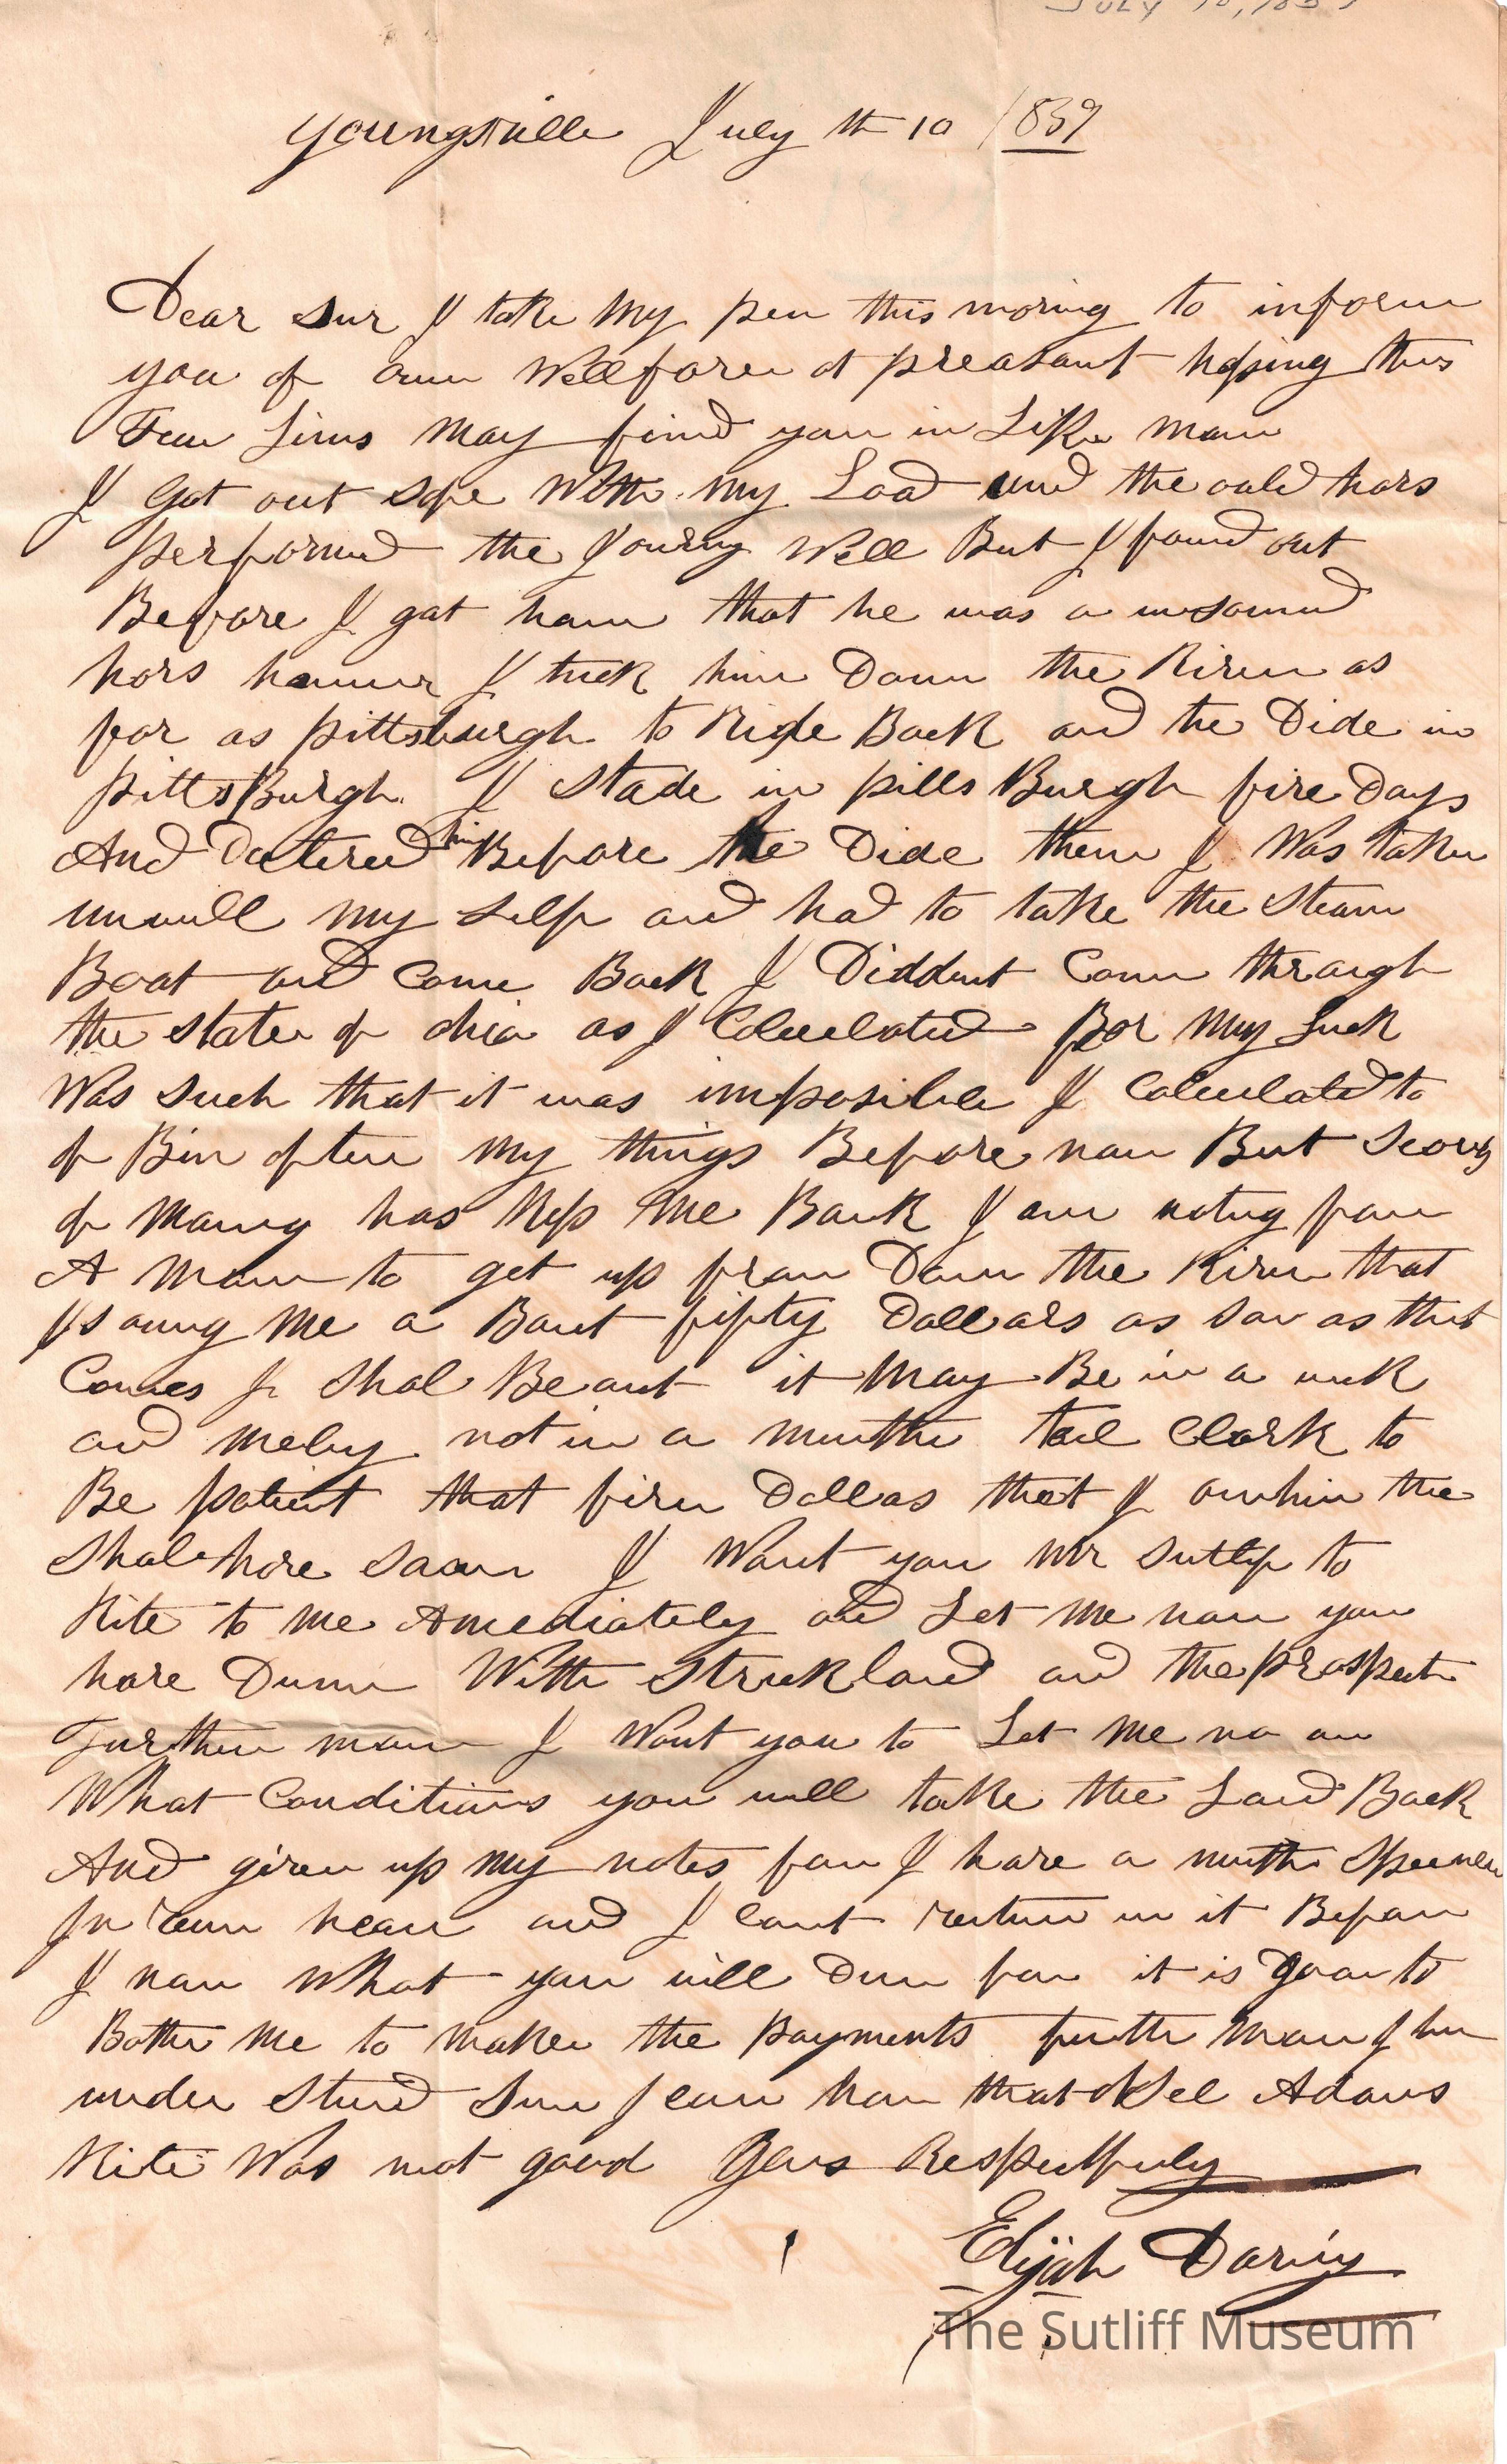 July 10, 183
Youngsville July th 10 1839
Dear Sur I take My pen this moring to inform
you of ouer Wellfare at preasant hoping this
Few Lines May find you in Like man
I Got out safe With my Load and the ould hors
performed the Jourey Well But I found out
Before I got ham that he was a unsound
hors I tuck him Down the River as
far as pittsburgh to Ride Back and the Dide in
pittsBurgh I Stade in pittsBurgh five Days
And Doctered him Before the Dide then I Was taken
unwell my self and had to take the Steam
Boat and Come Back I Diddent Come through
the State of ohio as I Calculated For My Luck
Was Such that it was imposible I Calculated to
of Bin after my things Before now But
of Maney has Kep Me Back I am
A Man to get up from Down the River that
Is oung Me a Bout fifty Dollars as son as that
Comes I Shal Be out it May Be in a week
and meby not in a munthe tel Clark to
Be patient that five Dollas that I ow him the
Shal have Soon I Want you Mr Sutlif to
Rite to Me Amediately and Let Me now you
have Dunn With Strickland and the prospects
Further more I Wont you to Let Me no on
What Conditions you will take the Land Back
And given up my notes for I have a nuth
In hear and I cant in it Before
I now What you will Dun for it is Goan to
Bother Me to maken the payments furth More I hav
under Stud Sinc I cam ham that Adams
Rite Was not good Yors Respectfuly
Elijah Daviy
The Sutliff Museum